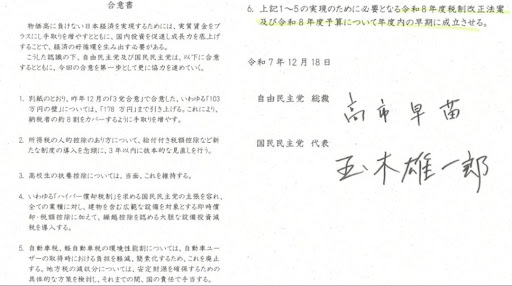 合意書
物価高に負けない日本経済を実現するためには、実質賃金をプ
ラスにし手取りを増やすとともに、国内投資を促進し成長力を底上げ
することで、経済の好循環を生み出す必要がある。
こうした認識の下、自由民主党及び国民民主党は、以下に合意
するとともに、今回の合意を第一歩として更に協力を進めていく。
1. 別紙のとおり、昨年12月の「3党合意」で合意した、いわゆる「103
万円の壁」については、「178 万円」まで引き上げる。これにより、
納税者の約8割をカバーするように手取りを増やす。
2. 所得税の人的控除のあり方について、給付付き税額控除など新
たな制度の導入を念頭に、3年以内に抜本的な見直しを行う。
3. 高校生の扶養控除については、当面、これを維持する。
4. いわゆる「ハイパー償却税制」を求める国民民主党の主張を容れ、
全ての業種に対し、建物を含む広範な設備を対象とする即時償
却・税額控除に加えて、繰越控除を認める大胆な設備投資減
税を導入する。
5. 自動車税、軽自動車税の環境性能割については、自動車ユー
ザーの取得時における負担を軽減、簡素化するため、これを廃止
する。地方税の減収分については、安定財源を確保するための
具体的な方策を検討し、それまでの間、国の責任で手当する。
6. 上記1~5の実現のために必要となる令和8年度税制改正法案
及び令和8年度予算について年度内の早期に成立させる。
令和7年12月18日
自由民主党 総裁
高市早苗
国民民主党 代表
玉木雄一郎